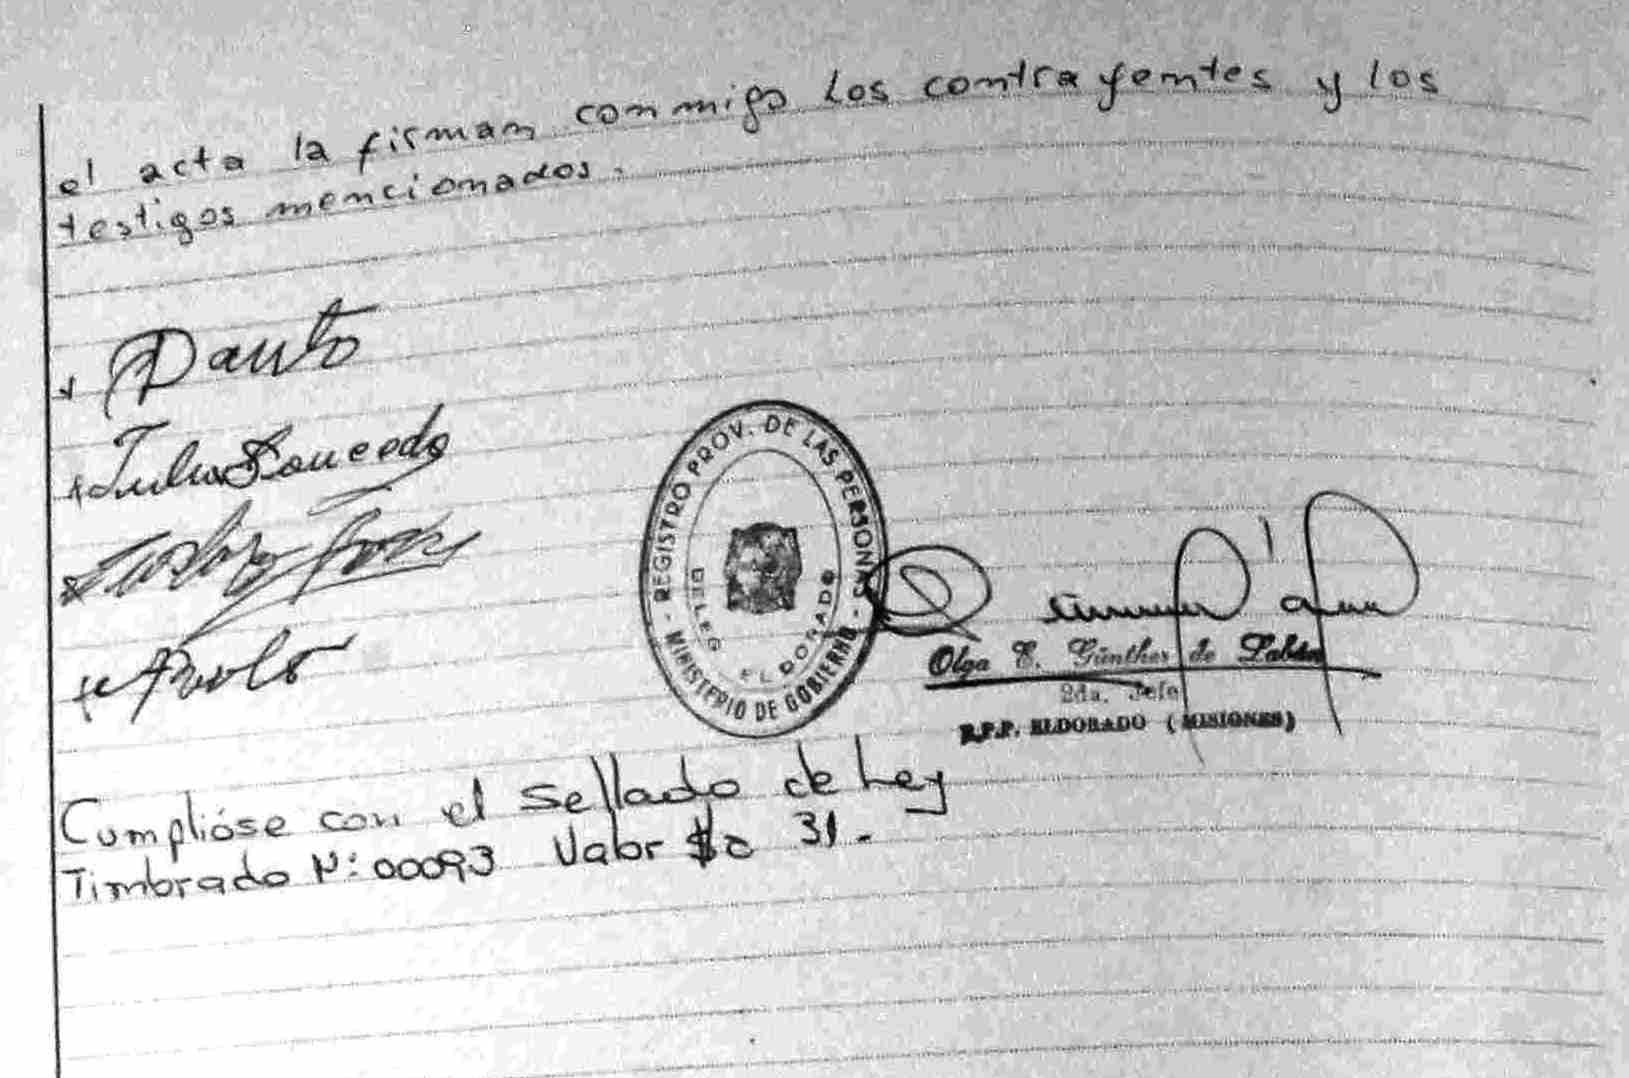 el acta la firman conmigo los contrayentes y los
testigos mencionados.
Julio Saucedo
REGISTRO PROV. DE LAS PERSONAS
- MINISTERIO DE GOBIERNO -
DELEG ELDORADO
Olga E. Günther de
2da. Jefe
R.P.P. ELDORADO (MISIONES)
Cumplióse con el Sellado de Ley
Timbrado Nº: 00093 Valor $a 31.-